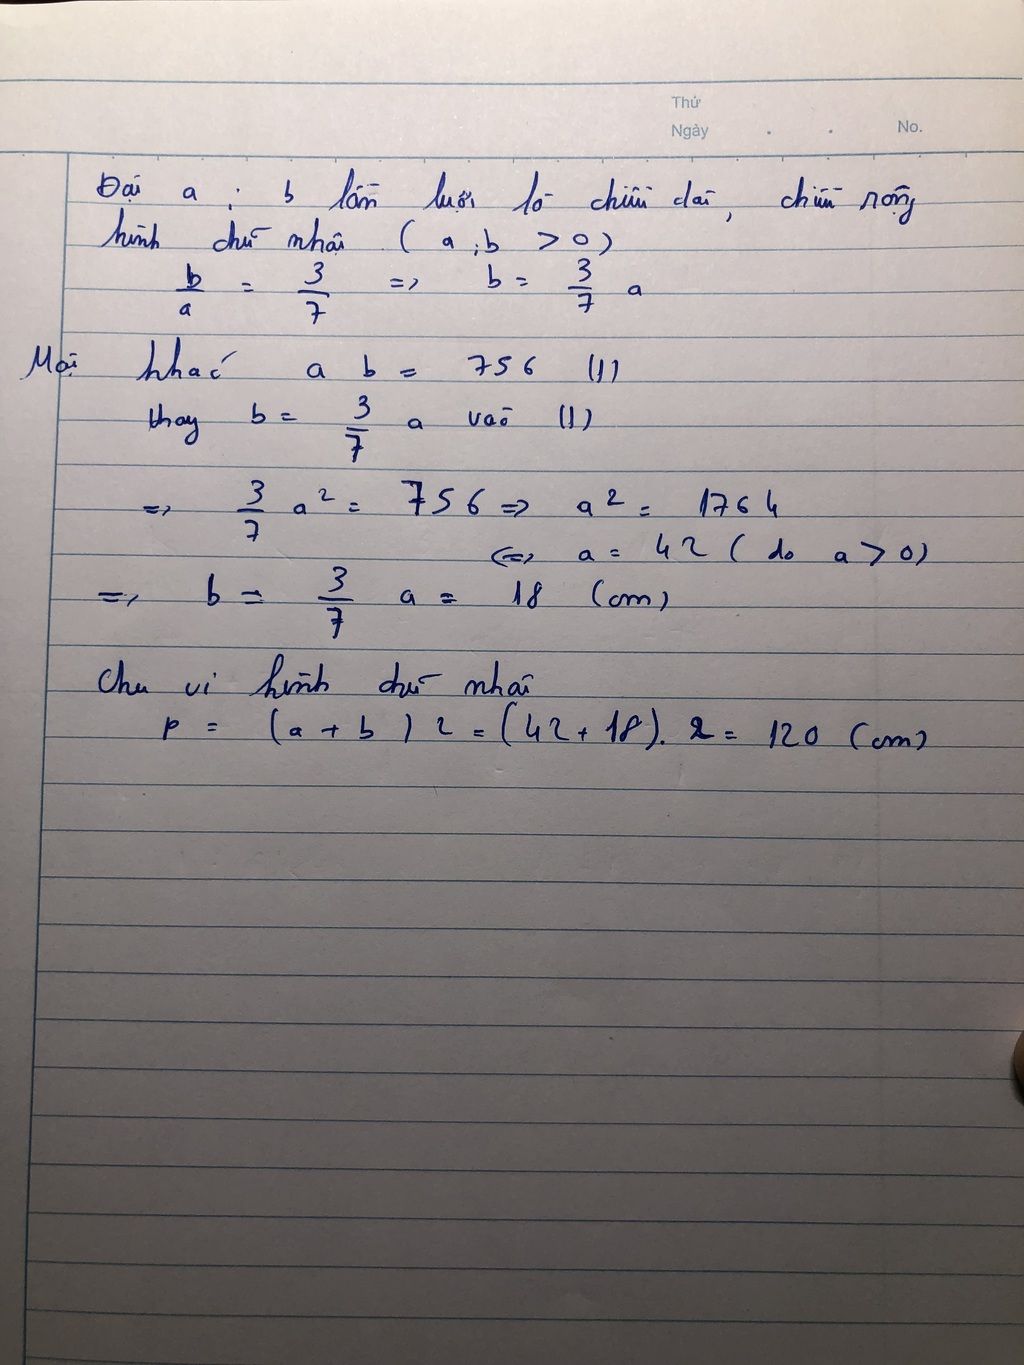 Thứ
Ngày . . No.
Đặt a ; b lần lượt là chiều dài, chiều rộng
hình chữ nhật ( a ; b > 0 )
b/a = 3/7 => b = 3/7 a
Mặt khác a b = 756 (1)
thay b = 3/7 a vào (1)
=> 3/7 a² = 756 => a² = 1764
<=> a = 42 ( do a > 0 )
=> b = 3/7 a = 18 (cm)
Chu vi hình chữ nhật
P = ( a + b ) 2 = ( 42 + 18 ) . 2 = 120 (cm)